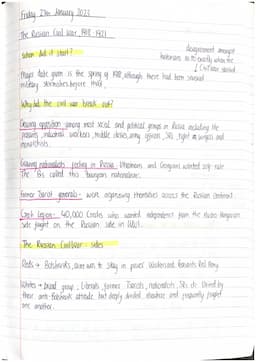 Friday 27th January 2023
The Russian Civil War 1918-1921
When did it start?
disagreement amongst
historians as to exactly when the
Civil War started
Major date given is the spring of 1918, although there had been
military skirmishes before this.
Why did the civil war break out?
Growing opposition among most social and political groups in Russia including the
peasants, industrial workers, middle classes, army officers, SRs, right wingers and
monarchists.
Growing nationalistic feeling in Russia. Ukrainians and Georgians wanted self-rule
The Bs called this bourgeois nationalism.
Former Tsarist generals - were organising themselves across the Russian continent.
Czech Legion: 40,000 Czechs who wanted independence from the Austro Hungarian
fought on the Russian side in WW1.
The Russian Civil War: sides
Reds → Bolsheviks, aim was to stay in power. Workers and Peasants Red Army.
Whites → broad group, Liberals, former Tsarists, nationalists, SRs etc. United by
their anti-Bolshevik attitude but deeply divided, and frequently fought
one another.